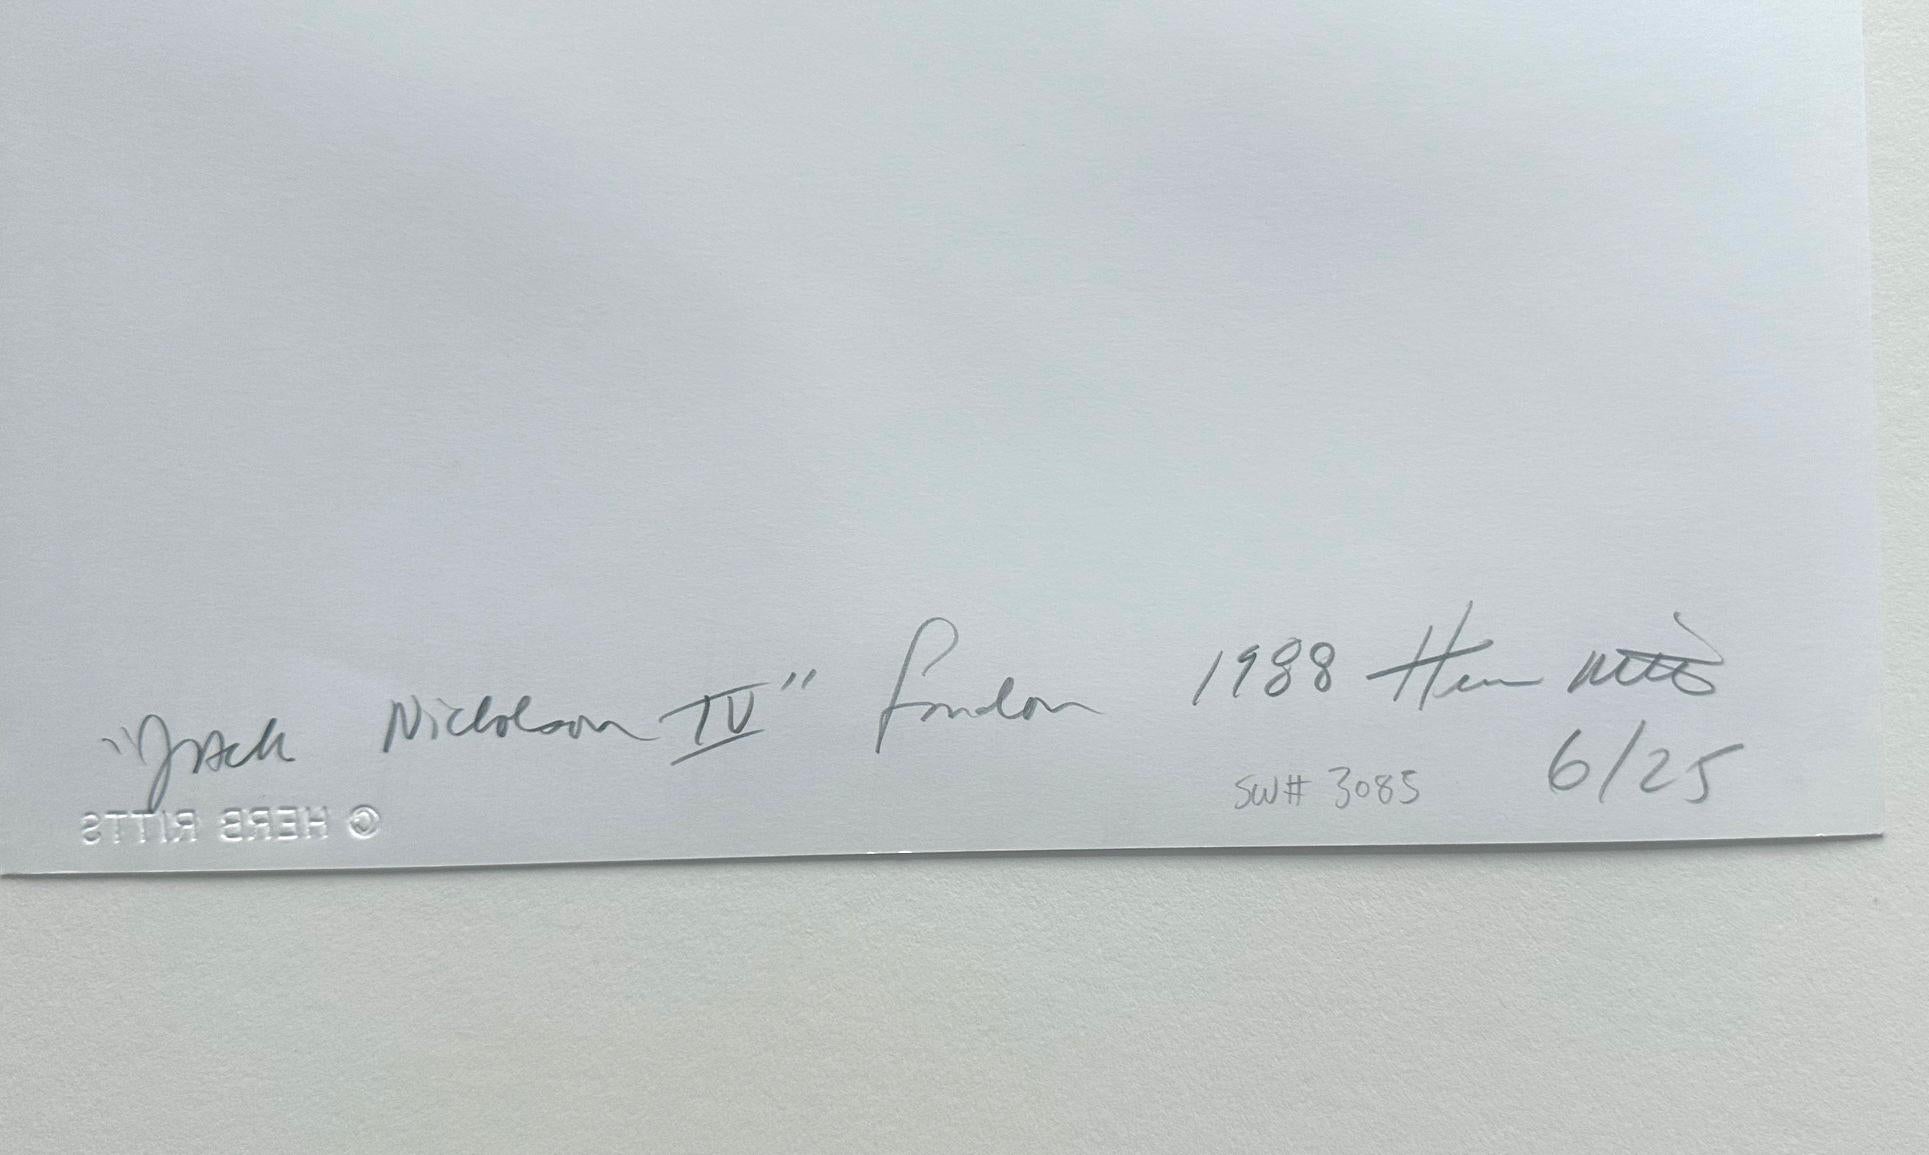 "Jack Nicholson IV" London 1988 Herb Ritts
6/25
SW# 3085
© HERB RITTS